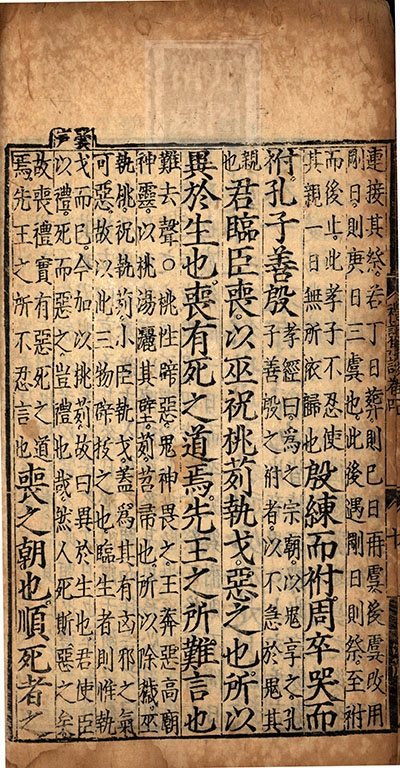 連接其祭若丁日葬則巳日再虞後虞改用
剛日則庚日三虞也此後遇剛日則祭至祔
而後止此孝子不忍使
其親一日無所依歸也
殷練而祔周卒哭而
祔孔子善殷
孝經曰為之宗廟以鬼享之孔
子善殷之祔者以不急於鬼其
親
也
君臨臣喪以巫祝桃茢執戈惡之也所以
異於生也喪有死之道焉先王之所難言也
難去聲○桃性辟惡鬼神畏之王莽惡高廟
神靈以桃湯灑其壁茢苕帚也所以除穢巫
執桃祝執茢小臣執戈蓋為其有凶邪之氣
可惡故以此三物辟祓之也臨生者則惟執
戈而已今加以桃茢故曰異於生也君使臣
以禮死而惡之豈禮也哉然人死斯惡之矣
故喪禮實有惡死之道
焉先王之所不忍言也
喪之朝也順死者之